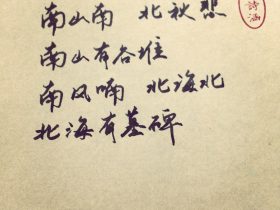 南山南 北秋悲
南山有谷堆
南风喃 北海北
北海有墓碑
詩涵